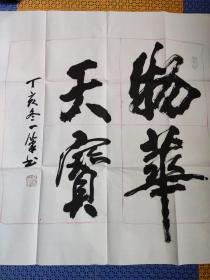 物華
天寶
丁亥冬一筆书